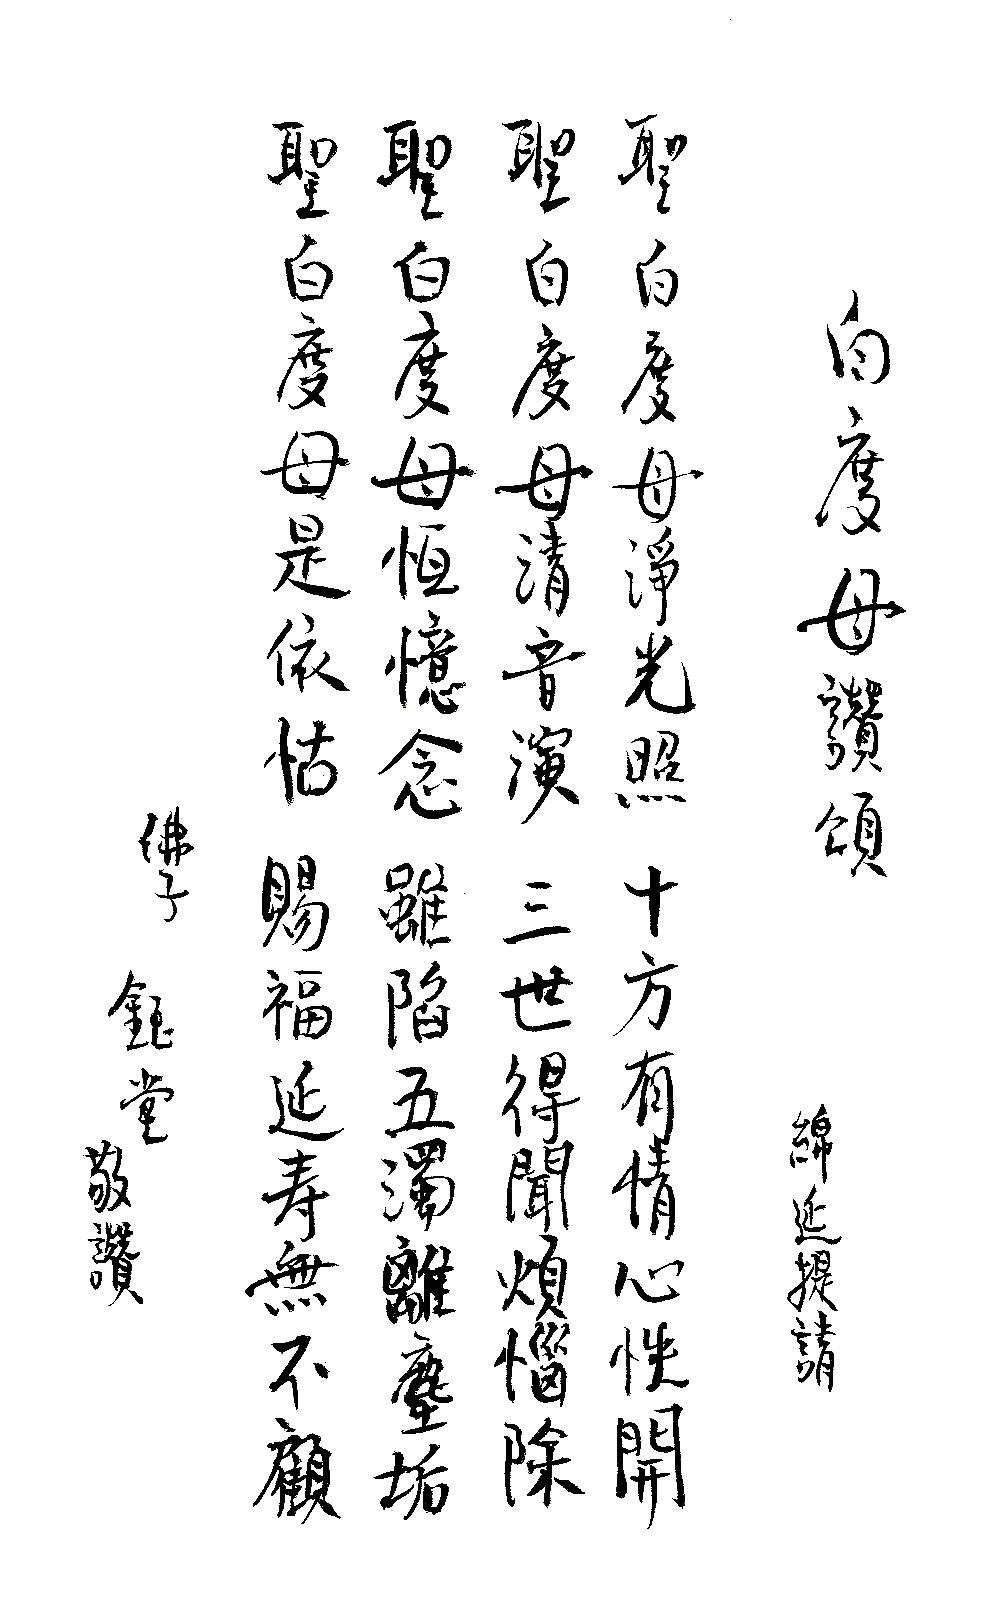 白度母讚頌
綿延提請
聖白度母淨光照 十方有情心性開
聖白度母清音演 三世得聞煩惱除
聖白度母恆憶念 雖陷五濁離塵垢
聖白度母是依怙 賜福延寿無不顧
佛子 鈺堂 敬讚